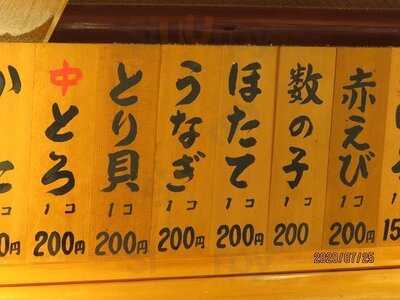 赤えび
1コ
200円
数の子
1コ
200
ほたて
1コ
200円
うなぎ
1コ
200円
とり貝
1コ
200円
中とろ
1コ
200円
コ
0円
2020/07/25